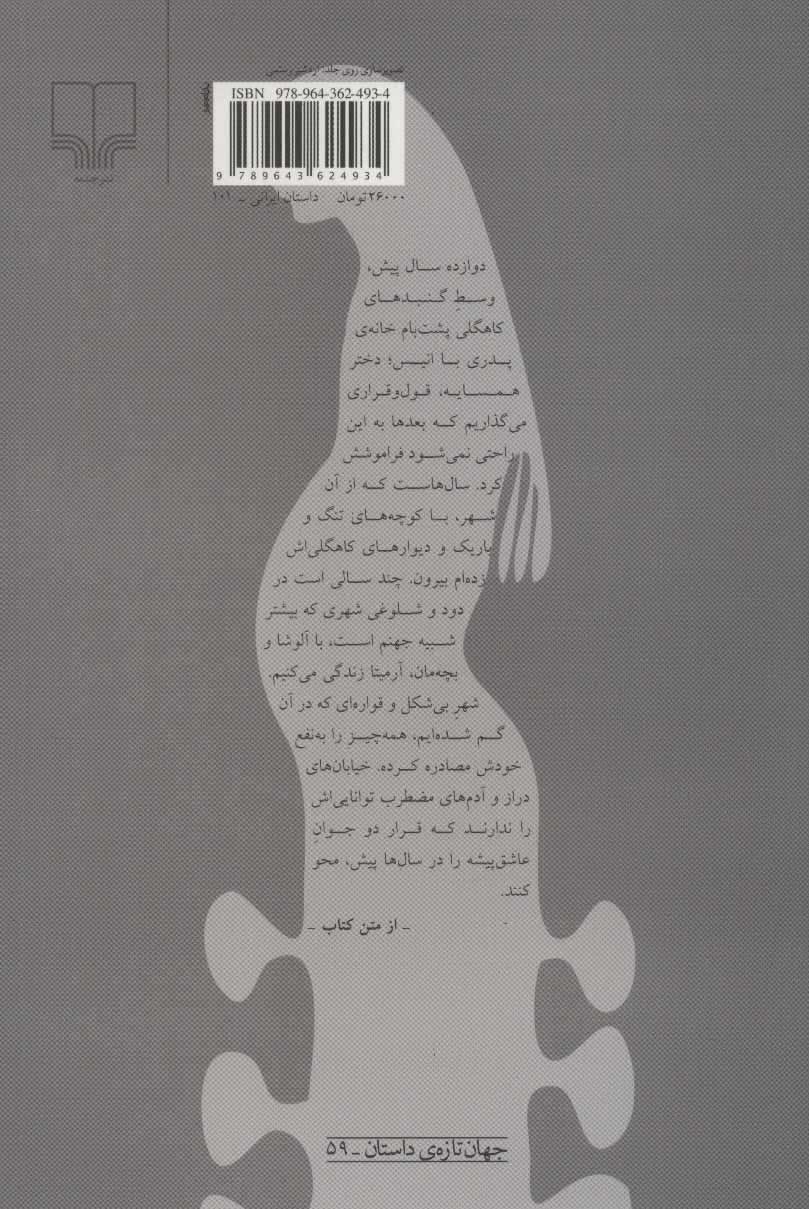 تصویرسازی روی جلد: اردشیر رستمی
ISBN 978-964-362-493-4
9 789643 624934
۲۶۰۰۰ تومان داستان ایرانی ـ ۱۰۱
نشرچشمه
دوازده ســال پیش،
وســطِ گـنـبـدهــای
کاهگلی پشت‌بام خانه‌ی
پــدری بــا انیــس؛ دختر
هـمـسـایـه، قـول‌وقـراری
می‌گذاریم کــه بعدها به این
راحتی نمی‌شــود فراموشش
کرد. سال‌هاســت کــه از آن
شــهر، بــا کوچه‌هــای تنگ و
باریک و دیوارهــای کاهگلی‌اش
زده‌ام بیرون. چند ســالی است در
دود و شــلوغی شهری که بیشتر
شــبیه جهنم اســت، با آلوشا و
بچه‌مان، آرمیتا زندگی می‌کنیم.
شهرِ بی‌شکل و قواره‌ای که در آن
گــم شــده‌ایم، همه‌چیــز را به‌نفع
خودش مصادره کــرده. خیابان‌های
دراز و آدم‌های مضطرب توانایی‌اش
را ندارنــد کــه قــرار دو جــوانِ
عاشق‌پیشه را در سال‌ها پیش، محو
کنند.
ـ از متن کتاب ـ
جهان تازه‌ی داستان ـ ۵۹